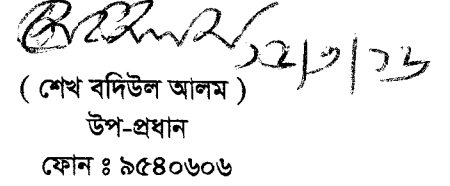 ১২/৩/১৬
( শেখ বদিউল আলম )
উপ-প্রধান
ফোন ঃ ৯৫৪০৬০৬